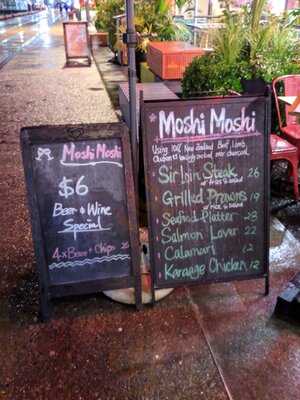 Moshi Moshi
$6
Beer & Wine
Special
4x Beer + Chips 25
Moshi Moshi
Using 100% New Zealand Beef, Lamb,
Chicken is lovingly cooked over charcoal.
Sirloin Steak 26
w fries & salad
Grilled Prawns 19
w rice & salad
Seafood Platter 28
Salmon Lover 22
Calamari 12
Karaage Chicken 12